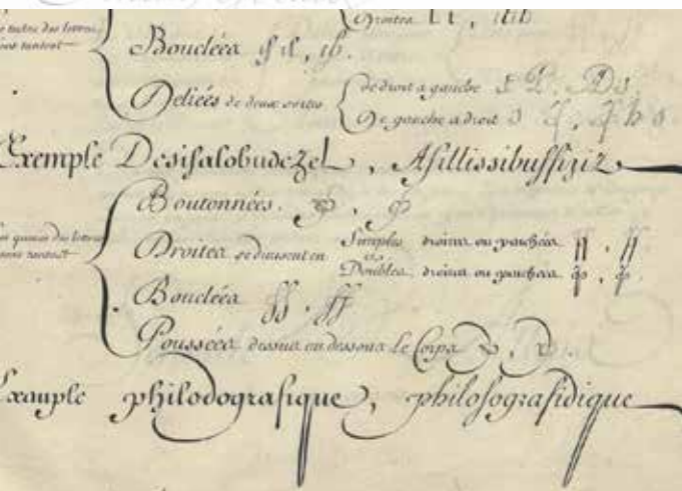 Droites
les testes des lettres
sont tantost
Bouclées
Deliées de deux sortes
de droit a gauche
De gauche a droit
Exemple Desisalobudezel, Asillissibuffiziz
Boutonnées.
Les queues des lettres
sont tantost
Droites se divisent en
Simples droites ou panchées ff. ff
ou
Doubles droites ou panchées
Bouclées ff. ff
Poussées dessus ou dessous Le Corps
Exemple philodografique, philosografidique